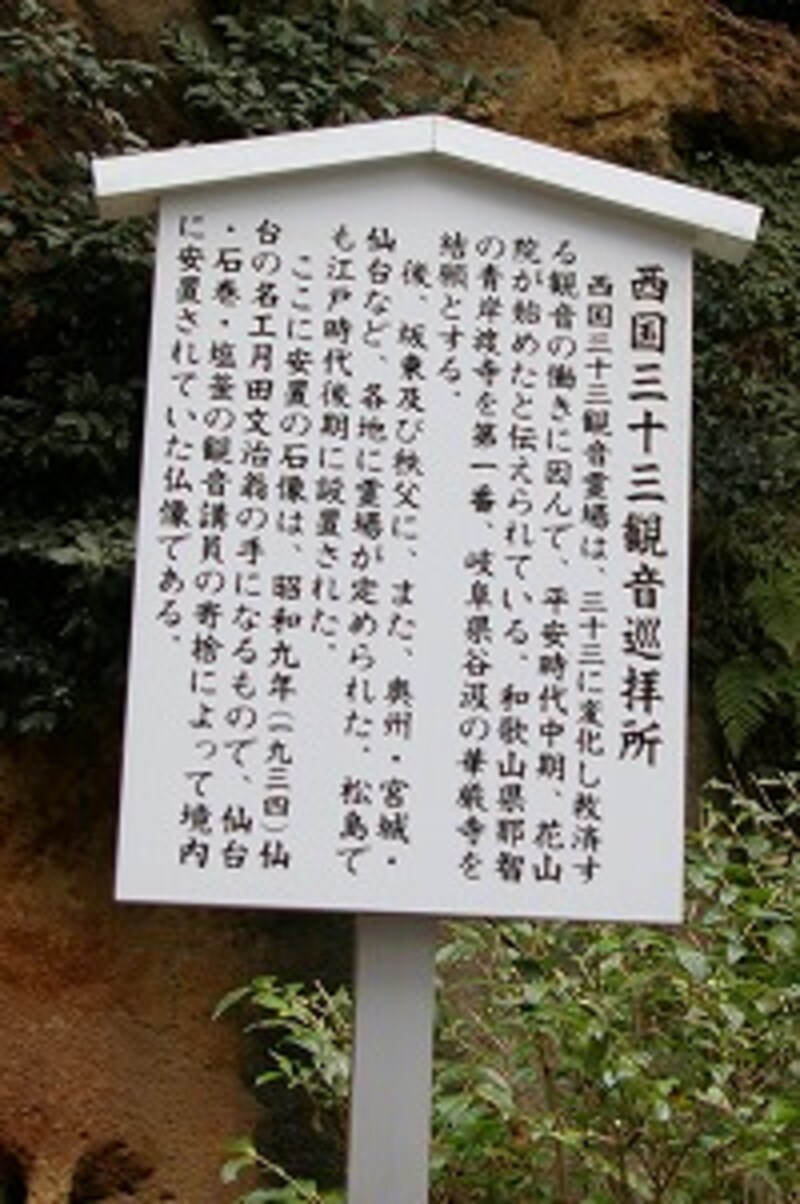 西国三十三観音巡拝所
西国三十三観音霊場は、三十三に変化し救済す
る観音の働きに因んで、平安時代中期、花山
院が始めたと伝えられている。和歌山県那智
の青岸渡寺を第一番、岐阜県谷汲の華厳寺を
結願とする。
後、坂東及び秩父に、また、奥州・宮城・
仙台など、各地に霊場が定められた。松島で
も江戸時代後期に設置された。
ここに安置の石像は、昭和九年（一九三四）仙
台の名工月田文治翁の手になるもので、仙台
・石巻・塩釜の観音講員の寄捨によって境内
に安置されていた仏像である。